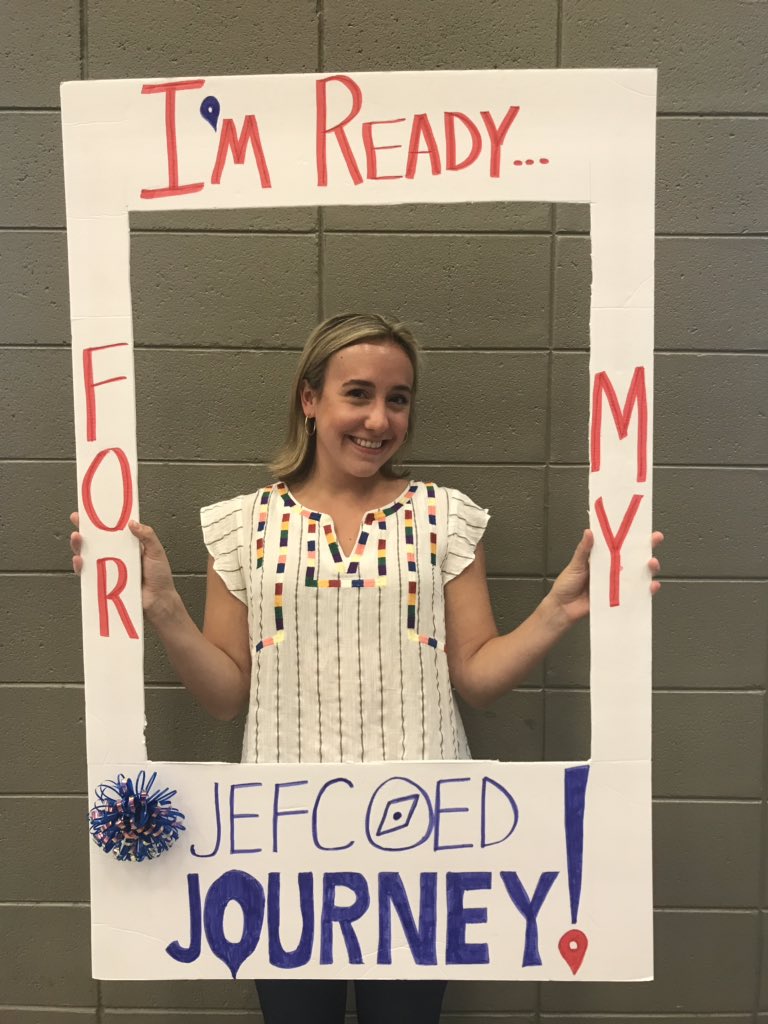 I'M READY...
FOR
MY
JEFCOED
JOURNEY!